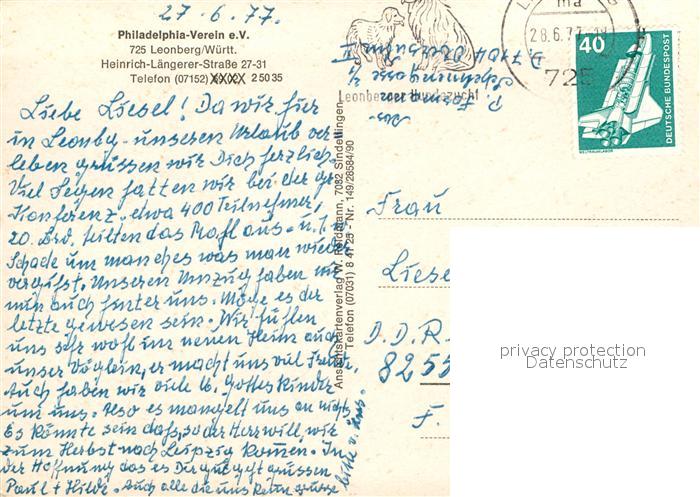 27.6.77.
Philadelphia-Verein e.V.
725 Leonberg/Württ.
Heinrich-Längerer-Straße 27-31
Telefon (07152) 2 50 35
Liebe Liesel! Da wir hier
in Leonbg. unseren Urlaub ver
leben grüssen wir Dich herzlich.
Viel Segen hatten wir bei der gr.
Konferenz, etwa 400 Teilnehmer,
20. Brd. teilten das Mahl aus. u.
Schade um manches was man wieder
vergisst. Unseren Umzug haben wir
nun auch hinter uns. Möge es der
letzte gewesen sein. Wir fühlen
uns sehr wohl im neuen Heim auch
unser Vöglein, er macht uns viel Freude.
Auch haben wir viele lb. Gotteskinder
um uns. Also es mangelt uns an nichts.
Es könnte sein dass, so der Herr will, wir
zum Herbst nach Leipzig komen. In
der Hoffnung das es Dir gut geht grüssen
Paul + Hilde. Auch alle die uns kennen grüsse
bitte v. uns.
Ansichtskartenverlag W. Heldmann, 7032 Sindelfingen
Telefon (07031) 8 41 25 - Nr. 149/28584/90
Leonberger Hundezucht
28.6.77-18
725
40
DEUTSCHE BUNDESPOST
WELTRAUMLABOR
Frau
Liese
D.D.R.
8255
F.
privacy protection
Datenschutz